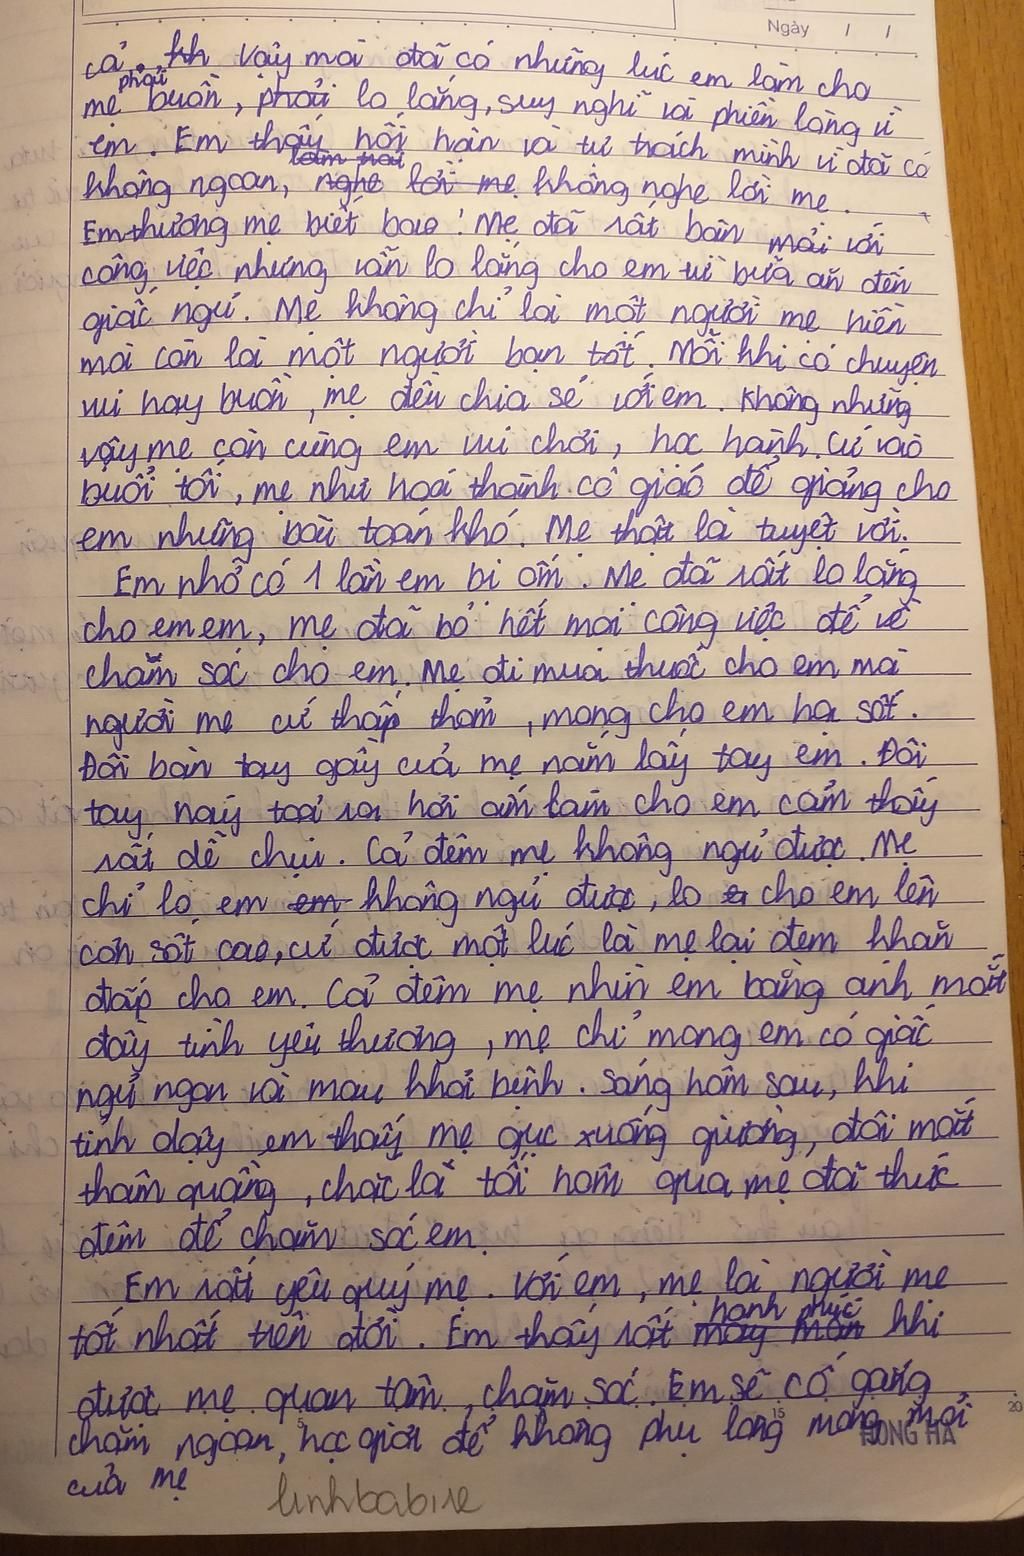 Ngày / /
cả. kh Vậy mà đã có những lúc em làm cho
phải
mẹ buồn, phải lo lắng, suy nghĩ và phiền lòng vì
em. Em thấy hối hận và tự trách mình vì đã có
làm trái
không ngoan, nghe lời mẹ không nghe lời mẹ.
Em thương mẹ biết bao! Mẹ đã rất bận mải với
công việc nhưng vẫn lo lắng cho em từ bữa ăn đến
giấc ngủ. Mẹ không chỉ là một người mẹ hiền
mà còn là một người bạn tốt. Mỗi khi có chuyện
vui hay buồn, mẹ đều chia sẻ với em. Không những
vậy mẹ còn cùng em vui chơi, học hành. cứ vào
buổi tối, mẹ như hoá thành cô giáo để giảng cho
em những bài toán khó. Mẹ thật là tuyệt vời.
Em nhớ có 1 lần em bị ốm. Mẹ đã rất lo lắng
cho em em, mẹ đã bỏ hết mọi công việc để về
chăm sóc cho em. Mẹ đi mua thuốc cho em mà
người mẹ cứ thấp thỏm, mong cho em hạ sốt.
Đôi bàn tay gầy của mẹ nắm lấy tay em. Đôi
tay này toả ra hơi ấm làm cho em cảm thấy
rất dễ chịu. Cả đêm mẹ không ngủ được. Mẹ
chỉ lo em em không ngủ được, lo cho em lên
cơn sốt cao, cứ được một lúc là mẹ lại đem khăn
đắp cho em. Cả đêm mẹ nhìn em bằng ánh mắt
đầy tình yêu thương, mẹ chỉ mong em có giấc
ngủ ngon và mau khỏi bệnh. Sáng hôm sau, khi
tỉnh dậy em thấy mẹ gục xuống giường, đôi mắt
thâm quầng, chắc là tối hôm qua mẹ đã thức
đêm để chăm sóc em.
Em rất yêu quý mẹ. Với em, mẹ là người mẹ
hạnh phúc
tốt nhất trên đời. Em thấy rất may mắn khi
được mẹ quan tâm, chăm sóc. Em sẽ cố gắng
chăm ngoan, học giỏi để không phụ lòng mong mỏi
của mẹ
5 15 20
HONG HA
linhbabie